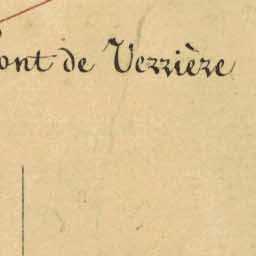 ont de Verrière